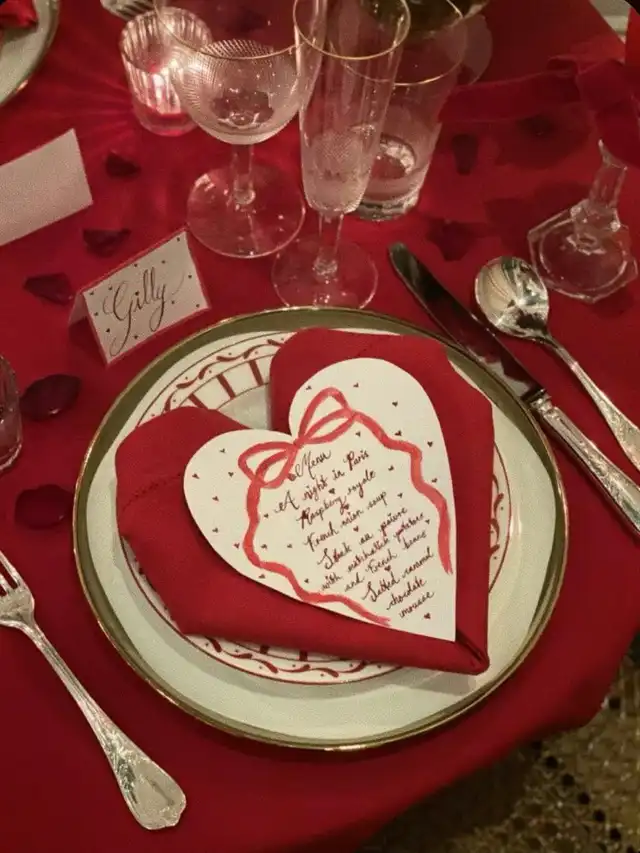 Gilly
Menu
A night in Paris
Raspberry royale
French onion soup
Steak au poivre
with matchstick potatoes
and French beans
Salted caramel
chocolate
mousse